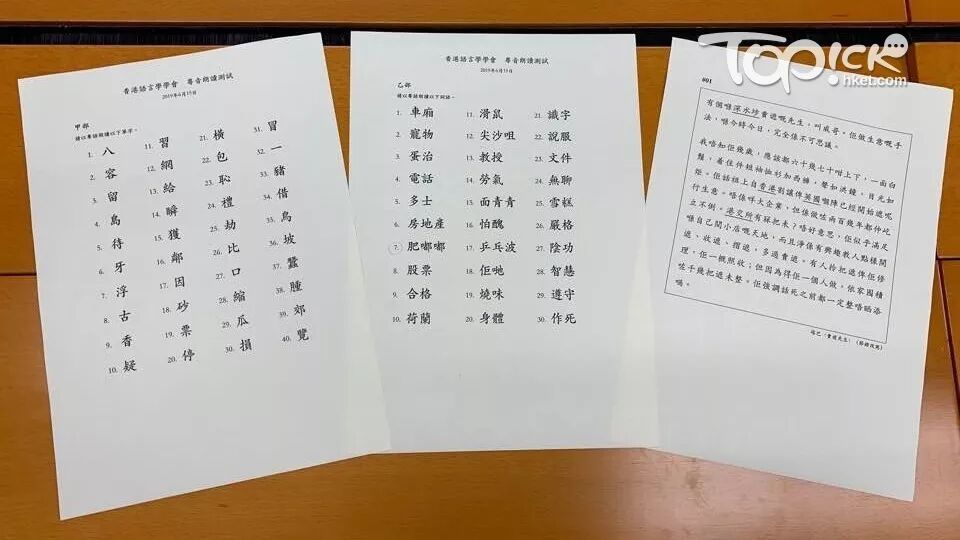 TOPick
hket.com
香港語言學學會 粵音朗讀測試
2019年6月15日
甲部
請以粵語朗讀以下單字。
1. 八
2. 容
3. 留
4. 島
5. 待
6. 牙
7. 浮
8. 古
9. 香
10. 疑
11. 習
12. 網
13. 給
14. 瞬
15. 獲
16. 鄰
17. 因
18. 砂
19. 票
20. 停
21. 橫
22. 包
23. 恥
24. 禮
25. 劫
26. 比
27. 口
28. 縮
29. 瓜
30. 損
31. 冒
32. 一
33. 豬
34. 借
35. 鳥
36. 坡
37. 蠶
38. 腫
39. 郊
40. 覽
香港語言學學會 粵音朗讀測試
2019年6月15日
乙部
請以粵語朗讀以下詞語。
1. 車廂
2. 寵物
3. 蛋治
4. 電話
5. 多士
6. 房地產
7. 肥嘟嘟
8. 股票
9. 合格
10. 荷蘭
11. 滑鼠
12. 尖沙咀
13. 教授
14. 勞氣
15. 面青青
16. 怕醜
17. 乒乓波
18. 佢哋
19. 燒味
20. 身體
21. 識字
22. 說服
23. 文件
24. 無聊
25. 雪糕
26. 嚴格
27. 陰功
28. 智慧
29. 遵守
30. 作死
001
有個喺深水埗賣遮嘅先生，叫威哥。佢做生意嘅手
法，喺今時今日，完全係不可思議。
我唔知佢幾歲，應該都六十幾七十咁上下，一面白
鬚，着住件短袖恤衫加西褲，聲如洪鐘，目光如
炬。佢話祖上自香港割讓俾英國嗰陣已經開始遮呢
行生意。唔係咩大企業，但係做咗兩百幾年都仲屹
立不倒。港交所有冧把未？唔好意思，佢似乎滿足
喺自己間小店嘅天地，而且淨係有興趣教人點樣開
遮、收遮、揩遮，多過賣遮。有人拎把遮俾佢修
理，佢一概照收；但因為得佢一個人做，依家囤積
咗千幾把遮未整。佢強調話死之前都一定整唔晒添
喎。